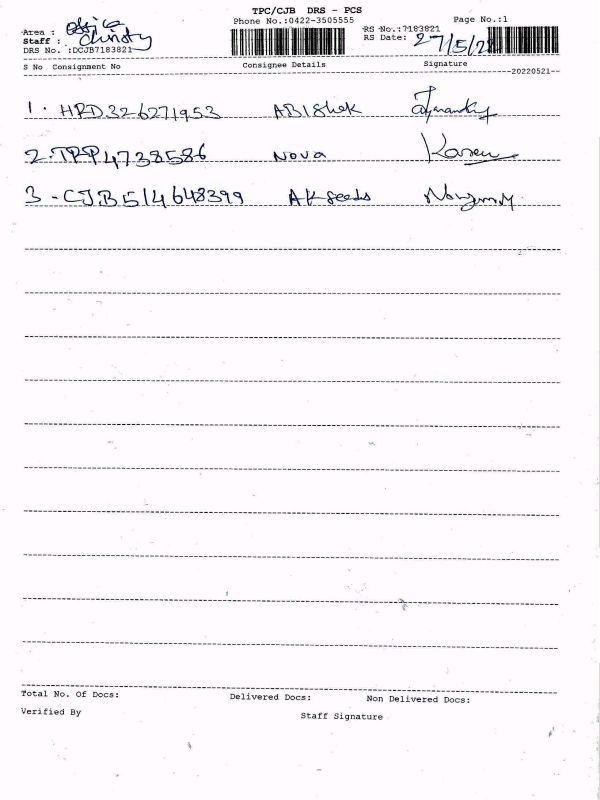 TPC/CJB DRS - PCS
Phone No.:0422-3505555 Page No.:1
Area : Office RS No.:7183821
Staff : Christy RS Date: 27/5/22
DRS No. :DCJB7183821
S No Consignment No Consignee Details Signature
20220521
1. HRD326271953 ABIShek
2. TPP4738586 Nova Karen
3 - CJB514648399 AK Seeds
Total No. Of Docs: Delivered Docs: Non Delivered Docs:
Verified By Staff Signature